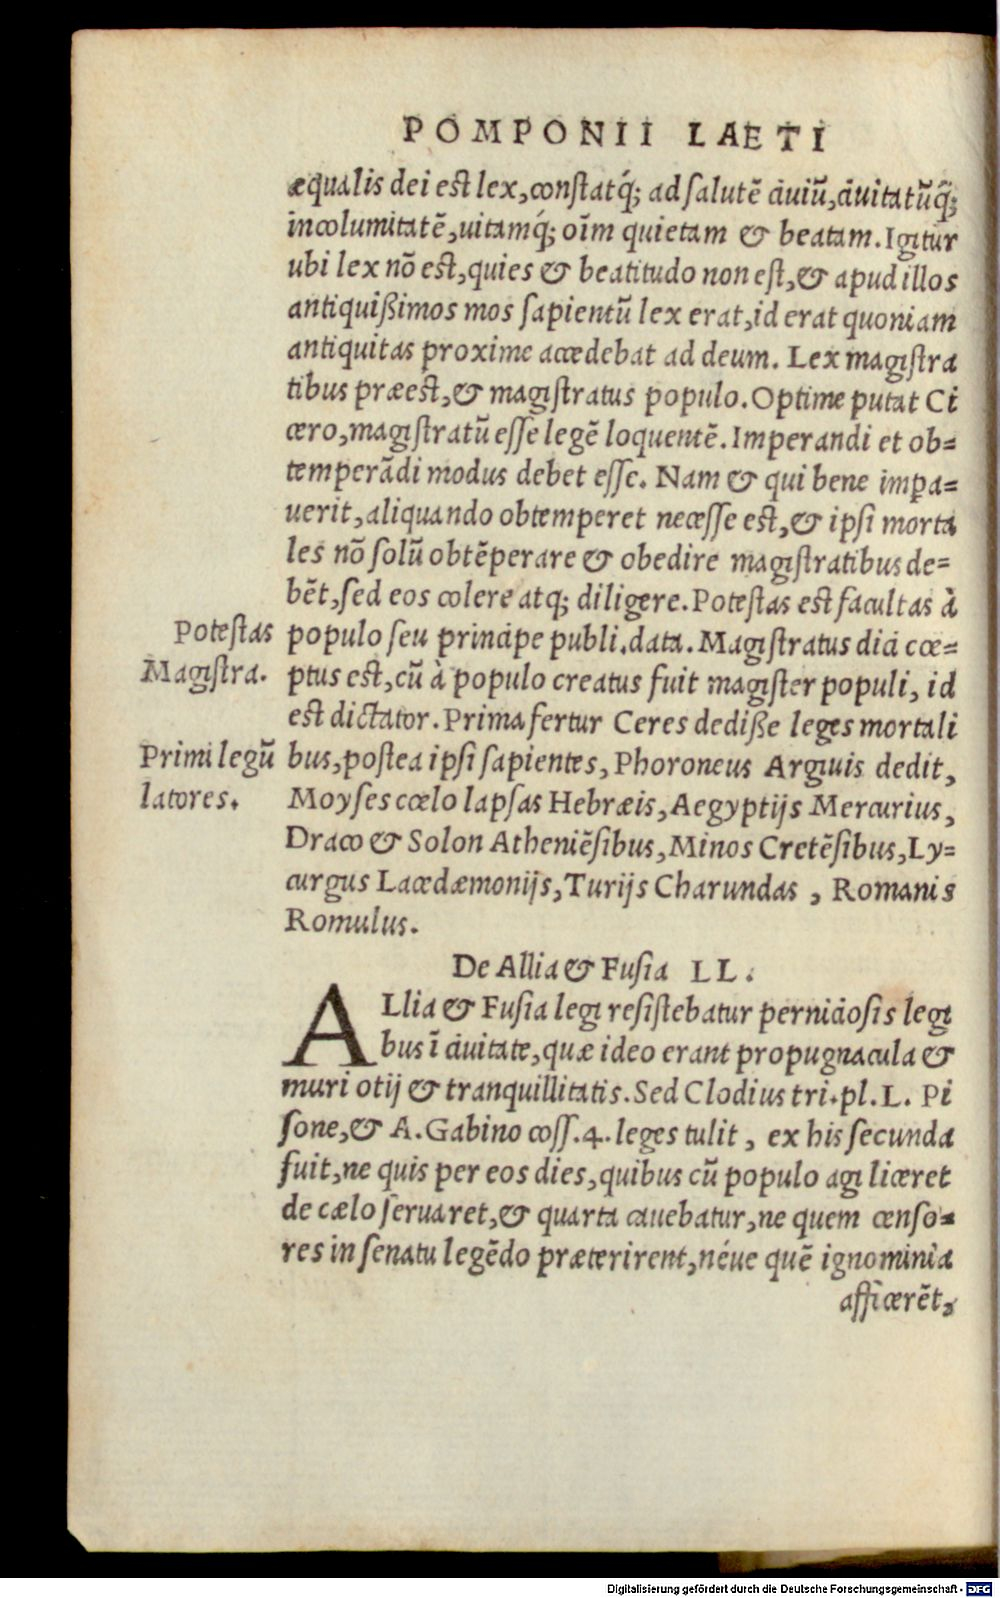 POMPONII LAETI
æqualis dei est lex, constatq́; ad salutē ciuiũ, ciuitatũq́;
incolumitatē, uitamq́; oīm quietam & beatam. Igitur
ubi lex nõ est, quies & beatitudo non est, & apud illos
antiquißimos mos sapientũ lex erat, id erat quoniam
antiquitas proxime accedebat ad deum. Lex magistra
tibus præest, & magistratus populo. Optime putat Ci
cero, magistratũ esse legē loquentē. Imperandi et ob=
temperãdi modus debet esse. Nam & qui bene impa=
uerit, aliquando obtemperet necesse est, & ipsi morta
les nõ solũ obtēperare & obedire magistratibus de=
bēt, sed eos colere atq; diligere. Potestas est facultas à
Potestas populo seu principe publi. data. Magistratus dici cœ=
Magistra. ptus est, cũ à populo creatus fuit magister populi, id
est dictator. Prima fertur Ceres dediße leges mortali
Primi legũ bus, postea ipsi sapientes, Phoroneus Argiuis dedit,
latores. Moyses cœlo lapsas Hebræis, Aegyptijs Mercurius,
Draco & Solon Atheniēsibus, Minos Cretēsibus, Ly=
curgus Lacedæmonijs, Turijs Charundas, Romanis
Romulus.
De Allia & Fusia LL.
ALlia & Fusia legi resistebatur perniciosis legi
bus ī ciuitate, quæ ideo erant propugnacula &
muri otij & tranquillitatis. Sed Clodius tri. pl. L. Pi
sone, & A. Gabino coss. 4. leges tulit, ex his secunda
fuit, ne quis per eos dies, quibus cũ populo agi liceret
de cælo seruaret, & quarta cauebatur, ne quem censo=
res in senatu legēdo præterirent, néue quē ignominia
afficerēt,
Digitalisierung gefördert durch die Deutsche Forschungsgemeinschaft - DFG